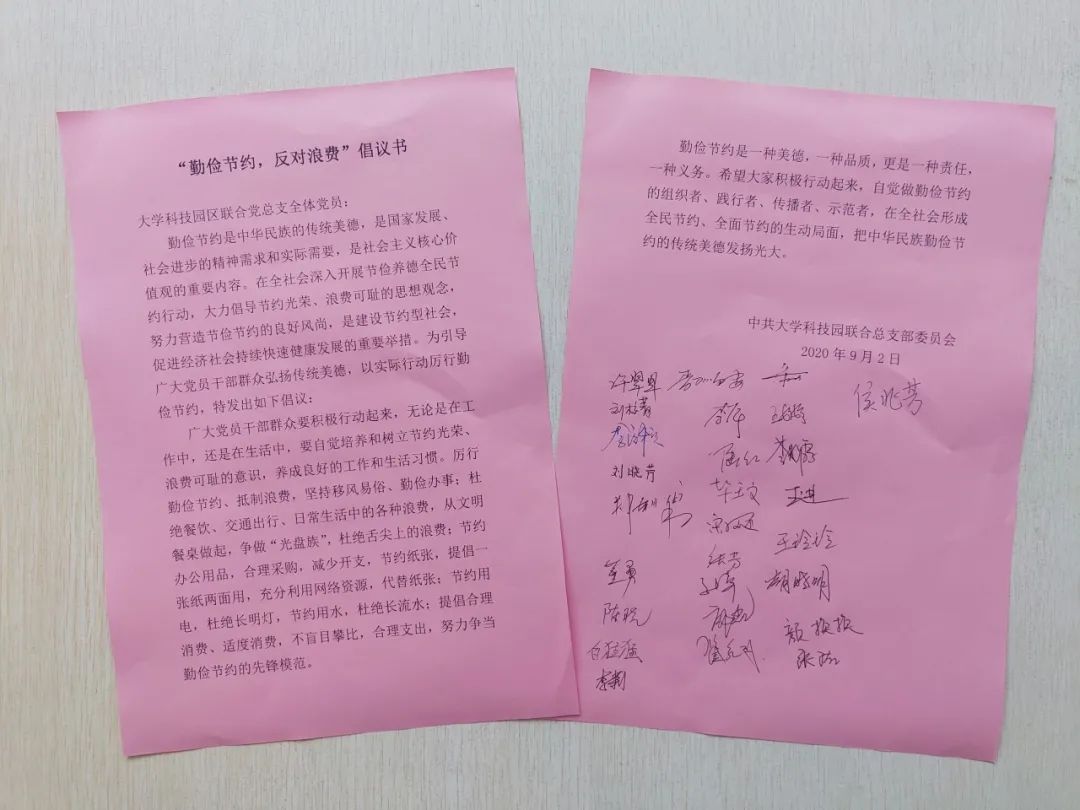 “勤俭节约，反对浪费”倡议书
大学科技园区联合党总支全体党员：
勤俭节约是中华民族的传统美德，是国家发展、
社会进步的精神需求和实际需要，是社会主义核心价
值观的重要内容。在全社会深入开展节俭养德全民节
约行动，大力倡导节约光荣、浪费可耻的思想观念，
努力营造节俭节约的良好风尚，是建设节约型社会，
促进经济社会持续快速健康发展的重要举措。为引导
广大党员干部群众弘扬传统美德，以实际行动厉行勤
俭节约，特发出如下倡议：
广大党员干部群众要积极行动起来，无论是在工
作中，还是在生活中，要自觉培养和树立节约光荣、
浪费可耻的意识，养成良好的工作和生活习惯。厉行
勤俭节约、抵制浪费，坚持移风易俗、勤俭办事；杜
绝餐饮、交通出行、日常生活中的各种浪费，从文明
餐桌做起，争做“光盘族”，杜绝舌尖上的浪费；节约
办公用品，合理采购，减少开支，节约纸张，提倡一
张纸两面用，充分利用网络资源，代替纸张；节约用
电，杜绝长明灯，节约用水，杜绝长流水；提倡合理
消费、适度消费，不盲目攀比，合理支出，努力争当
勤俭节约的先锋模范。
勤俭节约是一种美德，一种品质，更是一种责任，
一种义务。希望大家积极行动起来，自觉做勤俭节约
的组织者、践行者、传播者、示范者，在全社会形成
全民节约、全面节约的生动局面，把中华民族勤俭节
约的传统美德发扬光大。
中共大学科技园联合总支部委员会
2020 年 9 月 2 日
许翠翠
侯兆芳
刘晓芹
王进
王玲玲
胡晓明